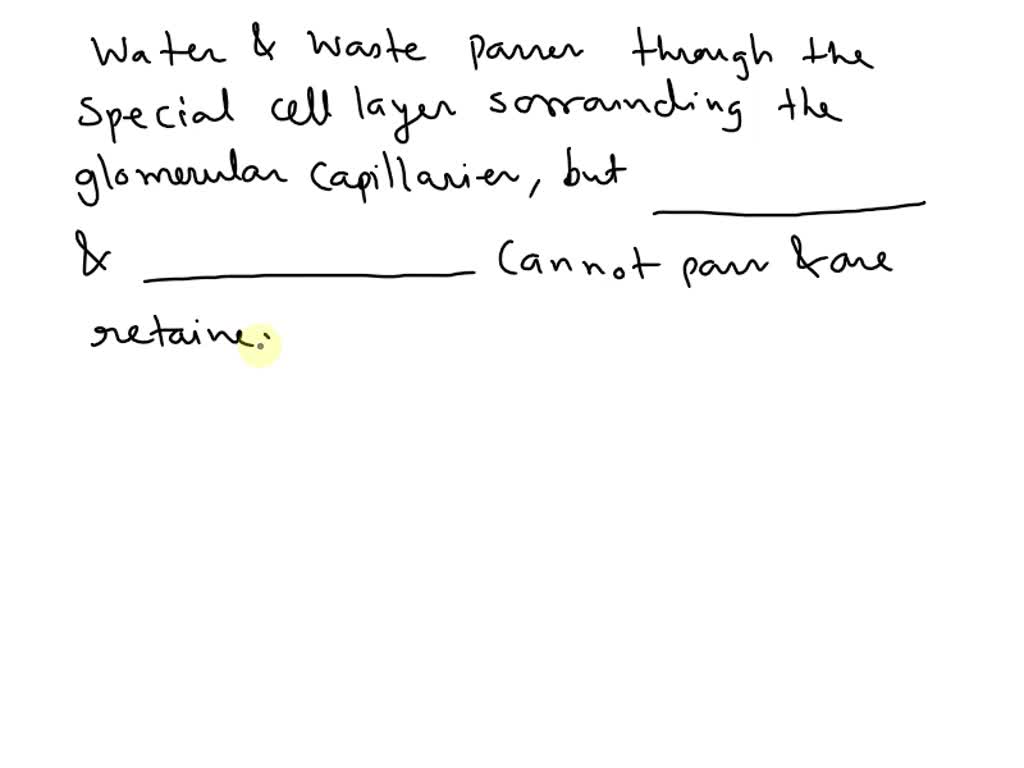 Water & Waste passes through the
Special cell layer sorrounding the
glomerular Capillaries, but ________
& ________ Cannot pass & are
retaine.